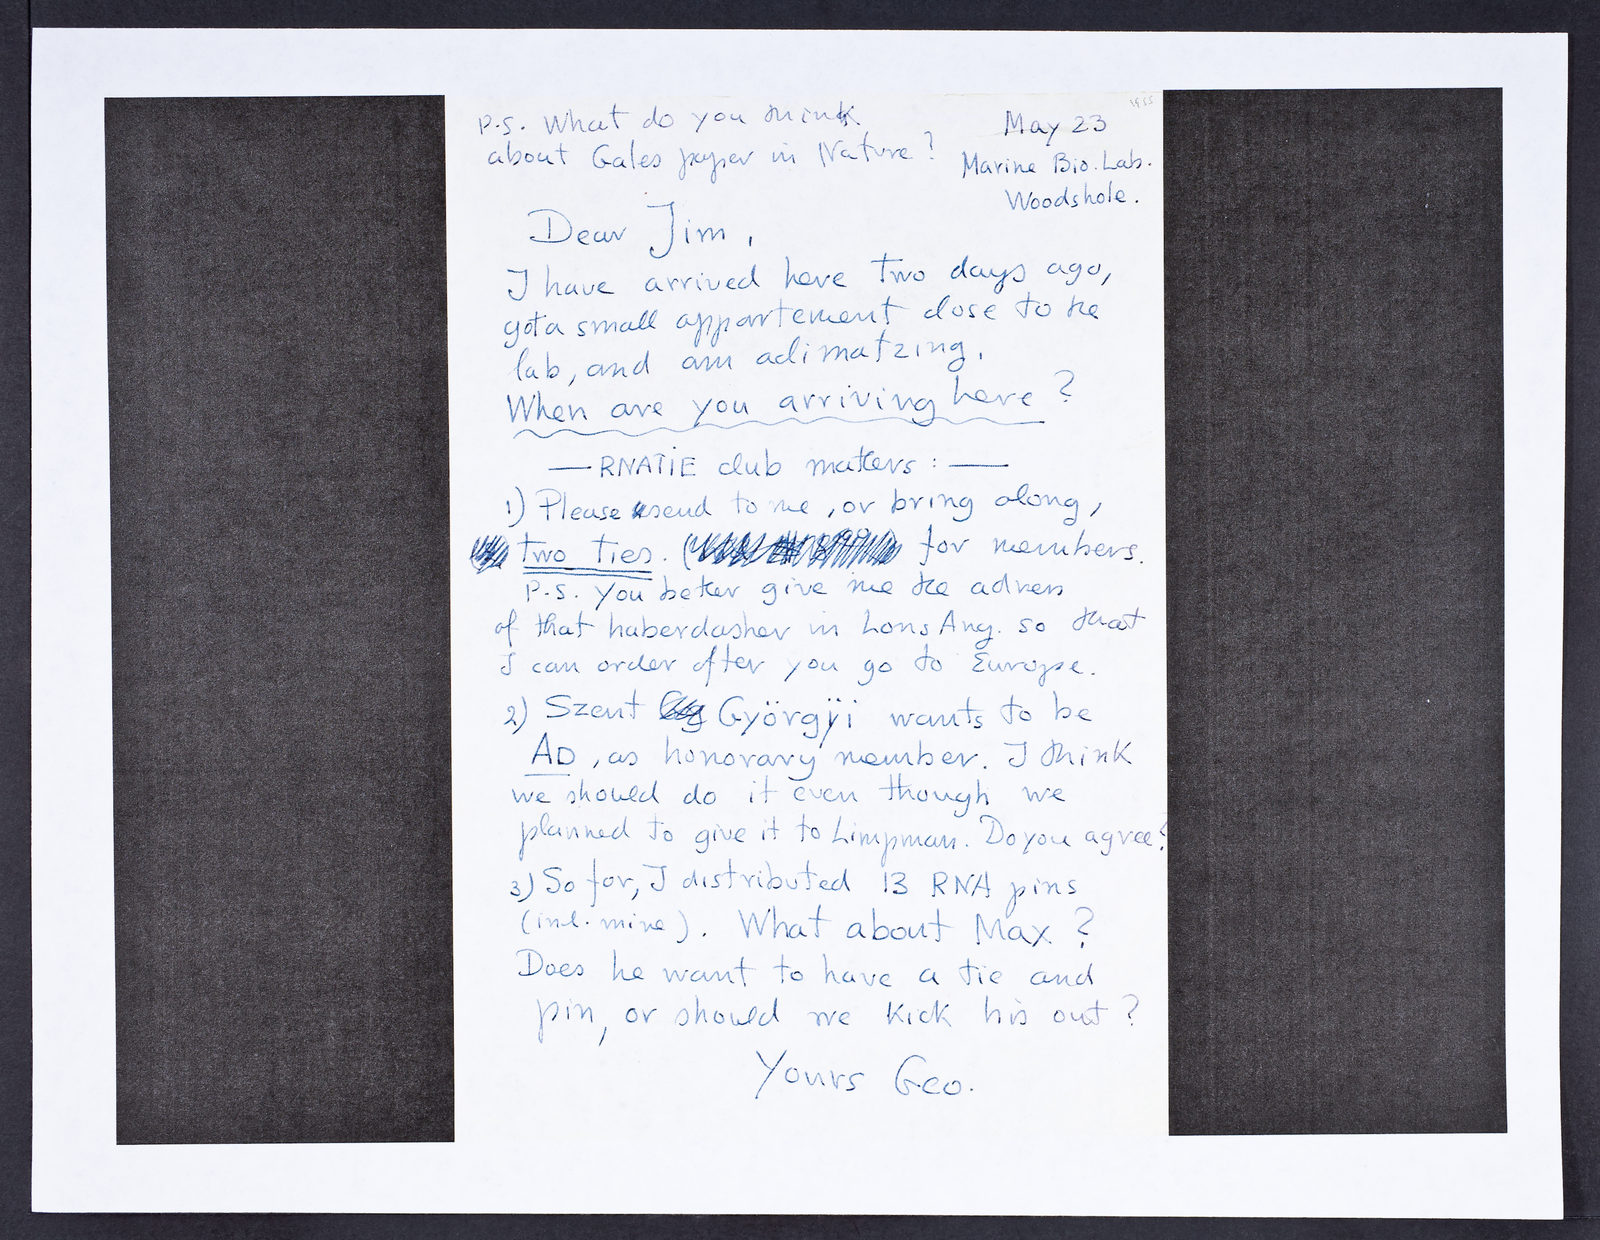 1955
P.S. What do you think
about Gales paper in Nature?
May 23
Marine Bio. Lab.
Woodshole.
Dear Jim,
I have arrived here two days ago,
got a small appartement close to the
lab, and am aclimatzing.
When are you arriving here?
— RNATIE club matters: —
1) Please send to me, or bring along,
two ties. ( for members.
P.S. You better give me the adress
of that haberdasher in Lons Ang. so that
I can order after you go to Europe.
2) Szent Györgÿi wants to be
AD, as honorary member. I think
we should do it even though we
planned to give it to Limpman. Do you agree?
3) So far, I distributed 13 RNA pins
(incl. mine). What about Max?
Does he want to have a tie and
pin, or should we kick his out?
Yours Geo.